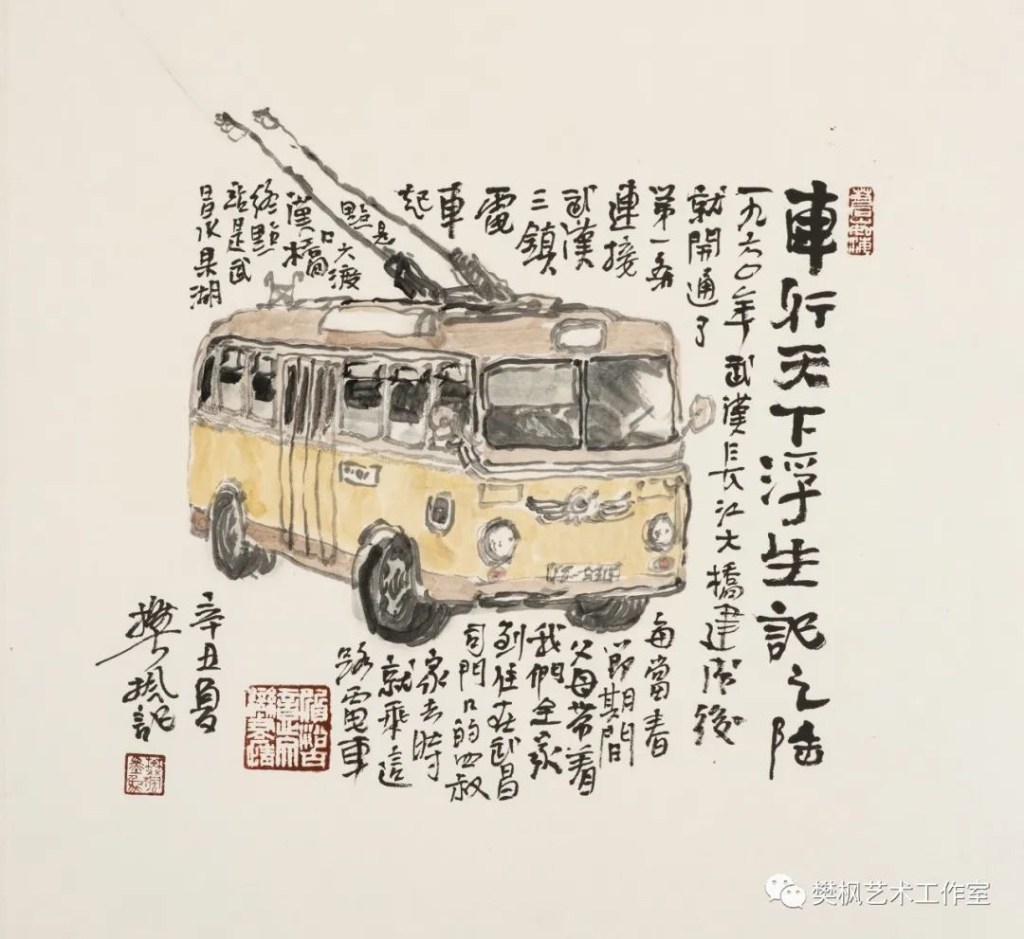 車行天下浮生記之陸
一九六〇年武漢長江大橋建成後
就開通了
第一条
連接
武漢
三鎮
電
車
起
點是
漢口大渡
橋
終點
站是武
昌水果湖
每當春
節期間
父母帶着
我們全家
到住在武昌
司門口的四叔
家去時
就乘這
路電車
辛丑夏
樊枫記
樊枫艺术工作室